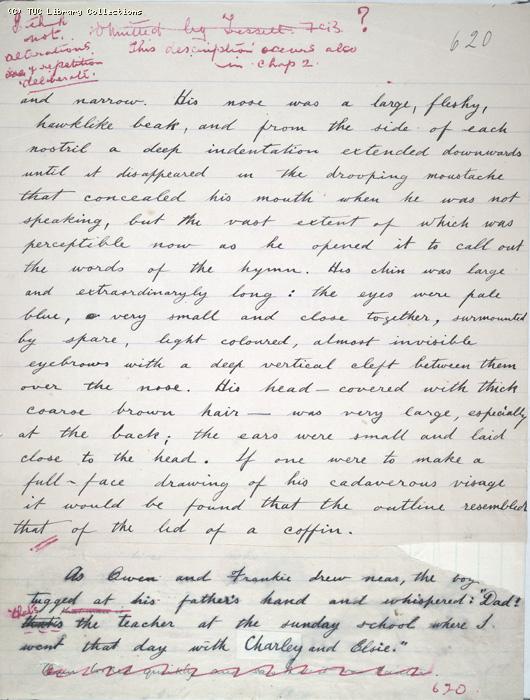 (C) TUC Library Collections
I think
not.
alterations
& repetition
deliberate.
Omitted by Tressell. FCB. ?
This description occurs also
in Chap 2.
620
and narrow. His nose was a large, fleshy,
hawklike beak, and from the side of each
nostril a deep indentation extended downwards
until it disappeared in the drooping moustache
that concealed his mouth when he was not
speaking, but the vast extent of which was
perceptible now as he opened it to call out
the words of the hymn. His chin was large
and extraordinaryly long: the eyes were pale
blue, very small and close together, surmounted
by spare, light coloured, almost invisible
eyebrows with a deep vertical cleft between them
over the nose. His head — covered with thick
coarse brown hair — was very large, especially
at the back; the ears were small and laid
close to the head. If one were to make a
full-face drawing of his cadaverous visage
it would be found that the outline resembled
that of the lid of a coffin.
As Owen and Frankie drew near, the boy
tugged at his father's hand and whispered: "Dad!
that's
that's the teacher at the sunday school where I
went that day with Charley and Elsie."
Owen looked quickly and
620